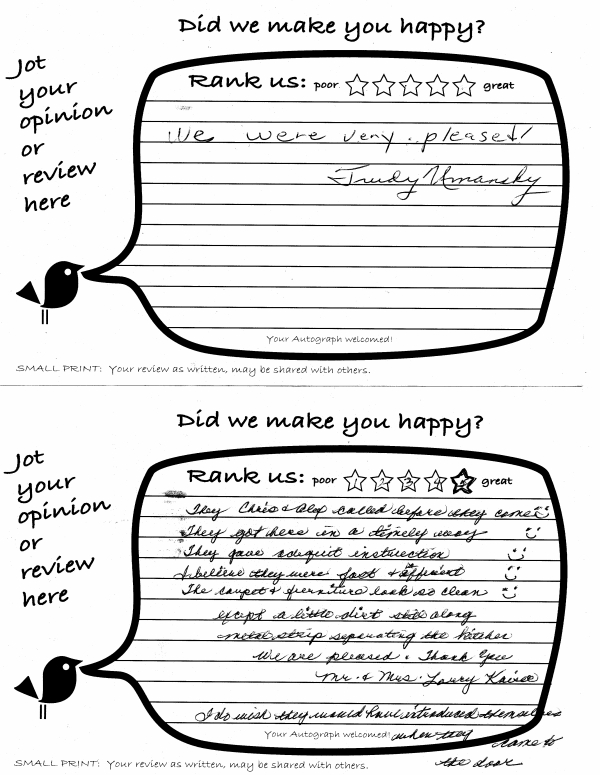 Did we make you happy?
Jot
your
opinion
or
review
here
Rank us: poor great
We were very pleased!
Trudy Umansky
Your Autograph welcomed!
SMALL PRINT: Your review as written, may be shared with others.
Did we make you happy?
Jot
your
opinion
or
review
here
Rank us: poor 1 2 3 4 5 great
They Chris & Alex called before they come
They got here in a timely way
They gave adequit instruction
I believe they were fast & efficient
The carpet & furniture look so clean
except a little dirt still along
metal strip separating the kitchen
We are pleased. Thank You
Mr. & Mrs. Larry
I do wish they would have introduced themselves
Your Autograph welcomed! when they
came to
the door
SMALL PRINT: Your review as written, may be shared with others.